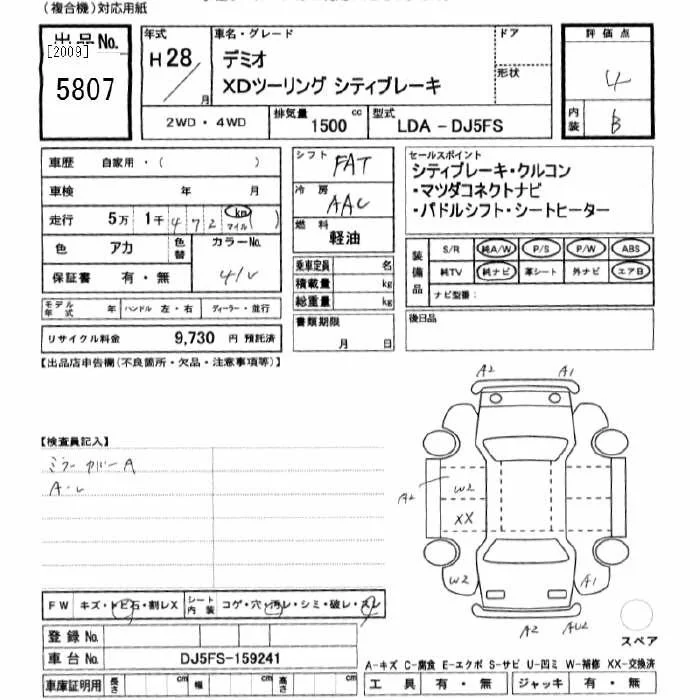 (複合機)対応用紙
出品No.
[2009]
5807
年式
H28
月
車名・グレード
デミオ
XDツーリング シティブレーキ
ドア
形状
2WD・4WD
排気量 1500 cc
型式 LDA-DJ5FS
評価点
4
内装
B
車歴 自家用・( )
車検 年 月
走行 5万 1千 4 7 2 km マイル ( )
色 アカ
色替
カラーNo.
41V
保証書 有・無
モデル年式 年 ハンドル 左・右 ディーラー・並行
リサイクル料金 9,730 円 預託済
シフト FAT
冷房 AAC
燃料 軽油
乗車定員 名
積載量 kg
総重量 kg
書類期限
月 日
セールスポイント
シティブレーキ・クルコン
・マツダコネクトナビ
・パドルシフト・シートヒーター
装備品
S/R 純A/W P/S P/W ABS
純TV 純ナビ 革シート 外ナビ エアB
ナビ型番:
後日品
【出品店申告欄(不良箇所・欠品・注意事項等)】
【検査員記入】
ミラーカバーA
A・レ
A2 A1
A2
W2
XX
W2 A1
A2 AU2
スペア
FW キズ・トビ石・割レX
シート内装 コゲ・穴・汚レ・シミ・破レ・スレ
登録No.
車台No. DJ5FS-159241
車庫証明用 長さ cm 幅 cm 高さ cm
A-キズ C-腐食 E-エクボ S-サビ U-凹ミ W-補修 XX-交換済
工具 有・無 ジャッキ 有・無